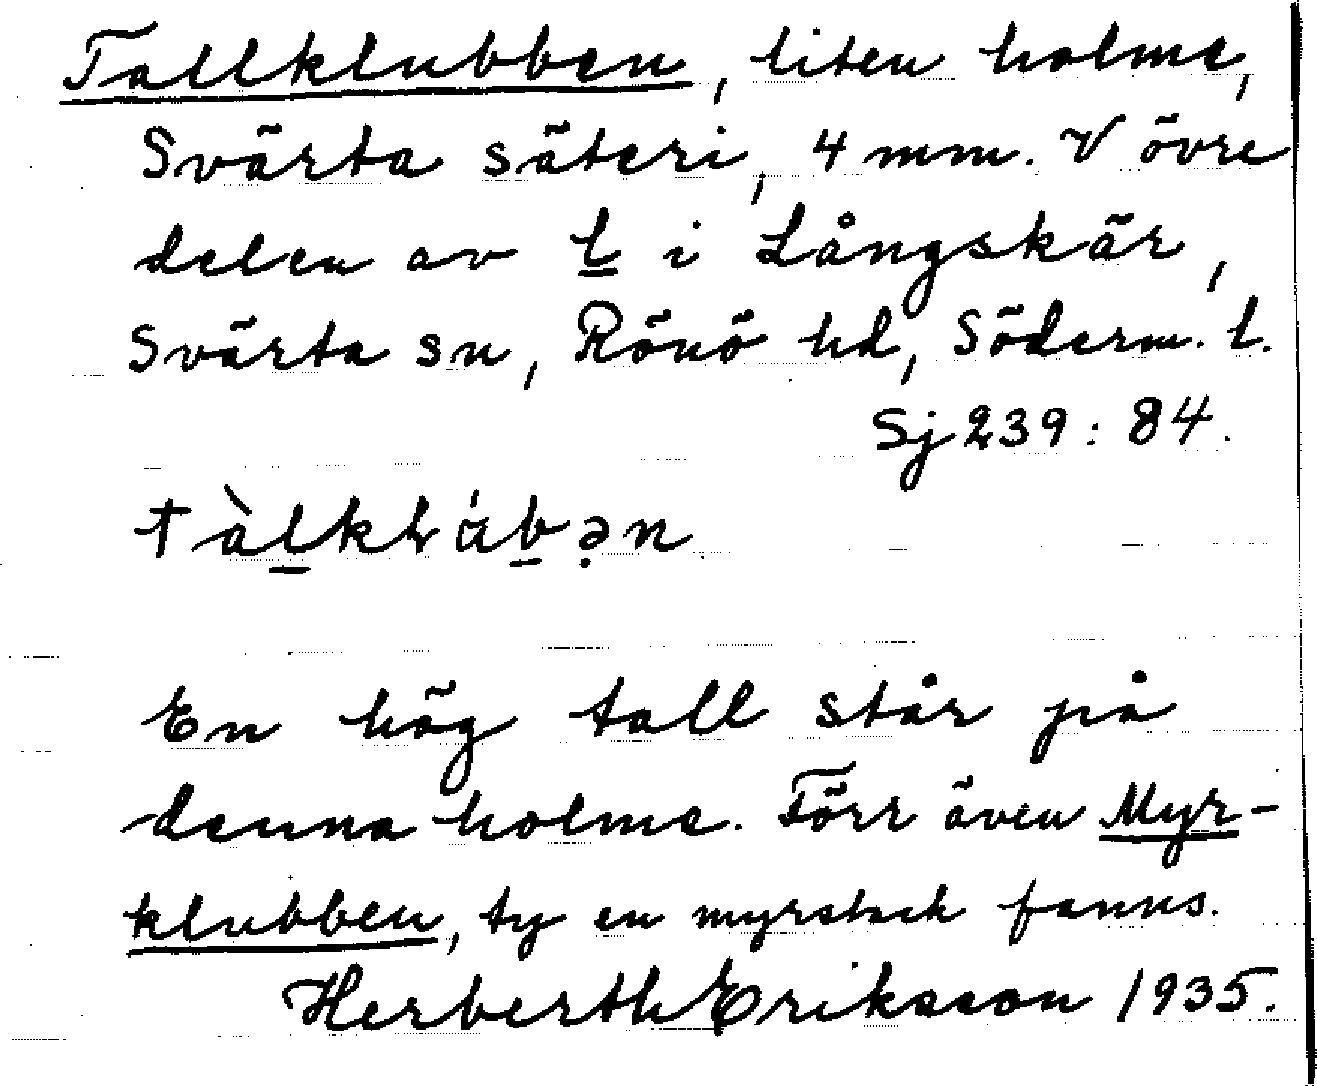 Tallklubben, liten holme,
Svärta säteri, 4 mm. V övre
delen av l i Långskär,
Svärta sn, Rönö hd, Söderm. l.
Sj 239: 84.
En hög tall står på
denna holme. Förr även Myr-
klubben, ty en myrstack fanns.
Herberth Eriksson 1935.